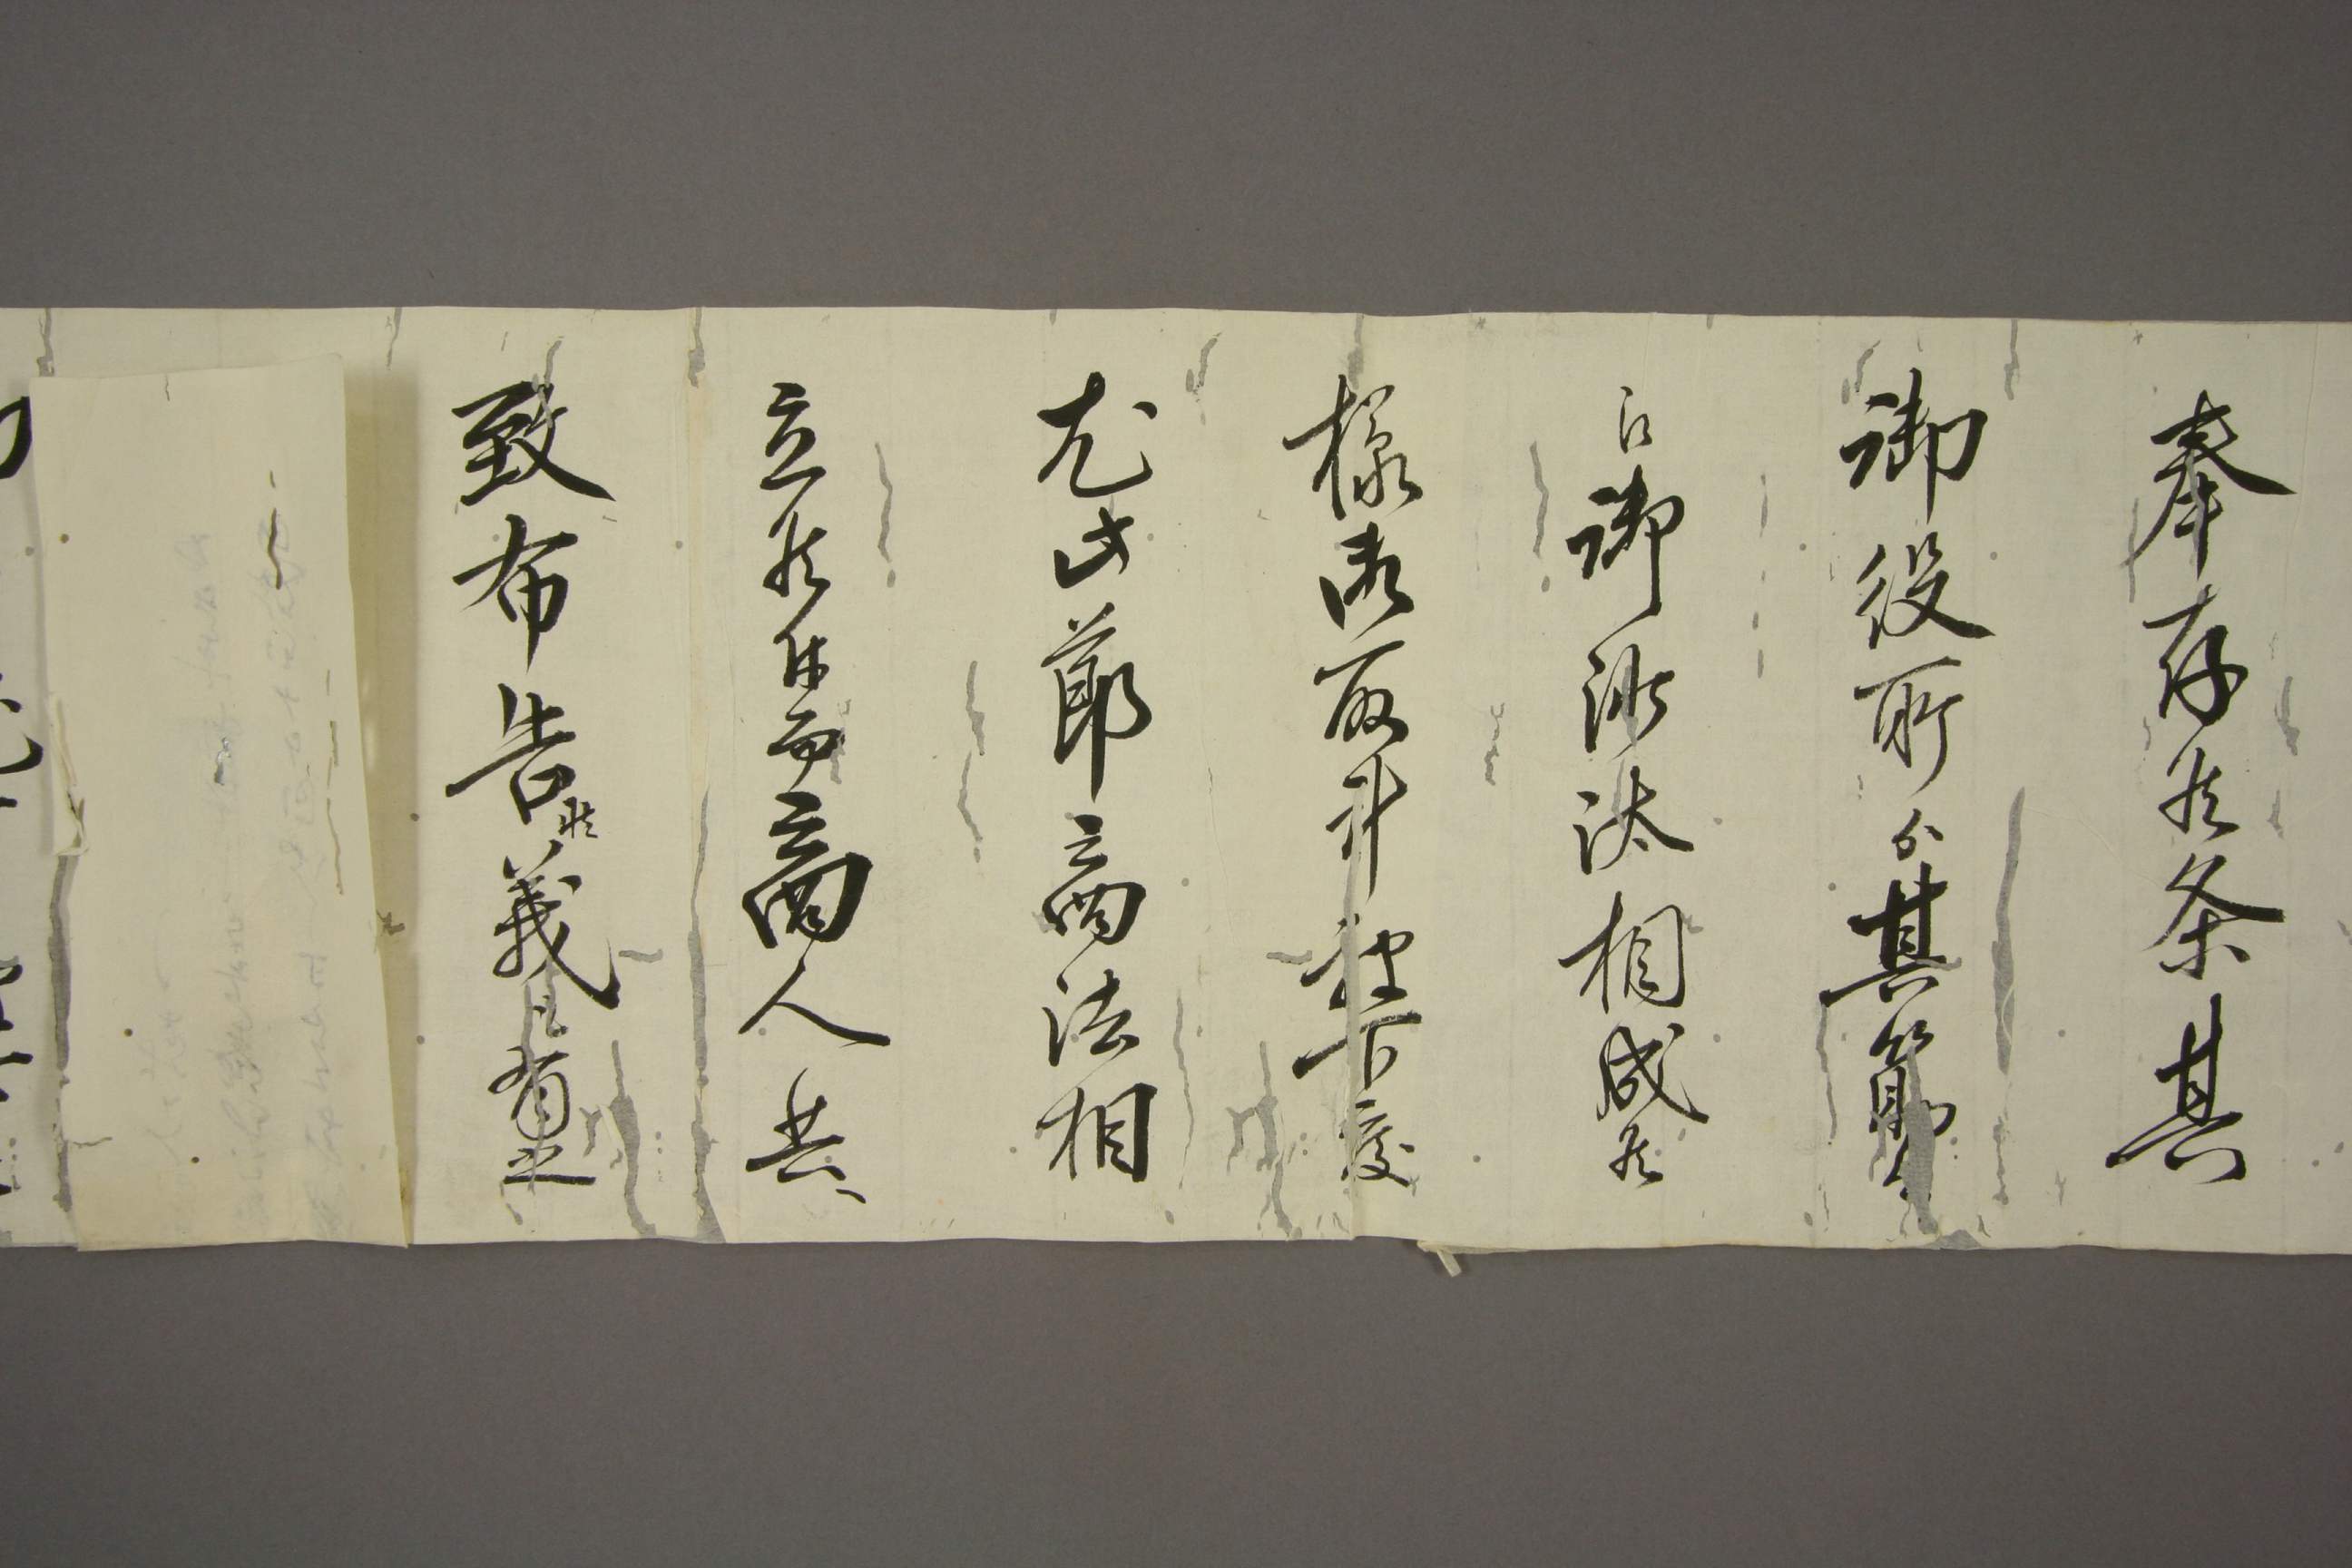 奉存候条其
御役所ゟ其筋
江御沙汰相成候
様御取計被下度
尤此節商法相
立候ニ付而商人共
致布告候義も有之